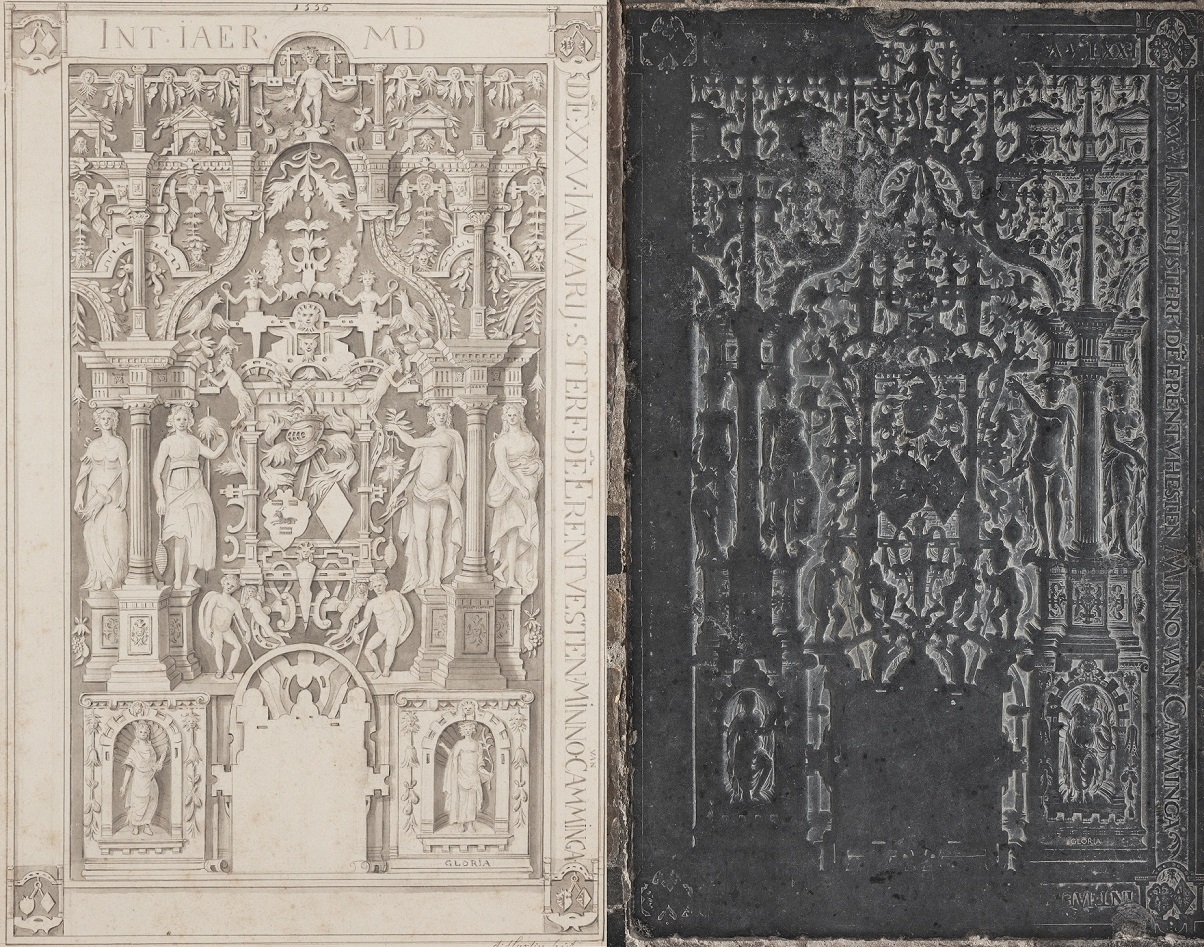 INT·IAER· MD
DE·XXV·IANVARIJ·STERF·DE·ERENTVESTEN·MINNO VAN CAMMINGA
GLORIA
IANVARIJ STERF DE ERENTVHESTEN MINNO VAN CAMMINGA
GLORIA